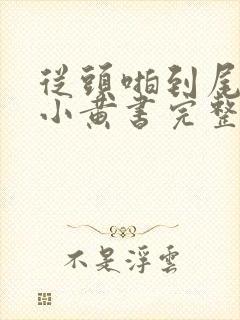 從頭啪到尾
小黃書完整
不是浮雲